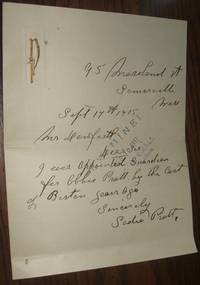 95 Moreland St
Somerville
Mass
Sept 17th 1915
Mr Danforth
Dear Sir
I was appointed Guardian
for Abbie Pratt by the Cort
of Boston years ago
Sincerely
Sadie Pratt,